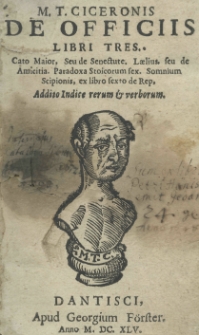 M. T. CICERONIS
DE OFFICIIS
LIBRI TRES.
Cato Maior, Seu de Senectute, Lælius, seu de
Amicitia. Paradoxa Stoicorum sex. Somnium
Scipionis, ex libro sexto de Rep.
Addito Indice rerum & verborum.
M.T.C.
DANTISCI,
Apud Georgium Förster.
Anno M. DC. XLV.